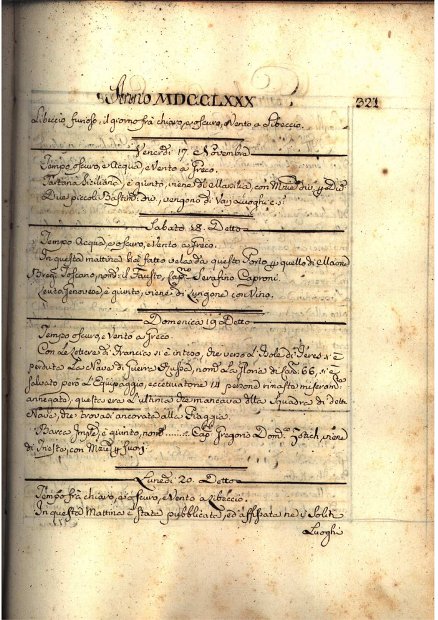 Anno MDCCLXXX
321
Libeccio furioso, il giorno frà chiaro, e oscuro, e Vento a Libeccio.
Venerdi 17 Novembre
Tempo oscuro, e Acqua, e Vento a Greco.
Tartana Siciliana è giunta, viene di Marsilia, con Mrie div. e
Due piccoli Bastim. div. vengono di Vari luoghi
Sabato 18 Detto
Tempo Acqua, e oscuro, e Vento a Greco.
In questa mattina hà fatto vela da questo Porto p quello di
Toscano, nom. il Fausto, Cap. Serafino Caproni.
Leuto Genovese è giunto, viene di Longone con Vino.
Domenica 19 Detto
Tempo oscuro, e Vento a Greco
Con le Lettere di Francia si è inteso, che verso l'Isole di Jeres s'è
perduta la Nave di Guerra Russa, nom. la Gloria di Can. 66, s'è
salvato però l'Equipaggio, eccettuatone 14 persone rimaste miseram.
annegate, questa era l'ultima che mancava alla Squadra di detta
Nave, che trovasi ancorata alla Spiaggia.
Barca Imple è giunta, nom. ........ Cap. Gregorio Dom. viene
di Trieste, con Mrie, e
Lunedi 20. Detto
Tempo frà chiaro, e oscuro, e Vento a Libeccio.
In questa Mattina è stata pubblicata, ed affissata ne i Soliti
Luoghi